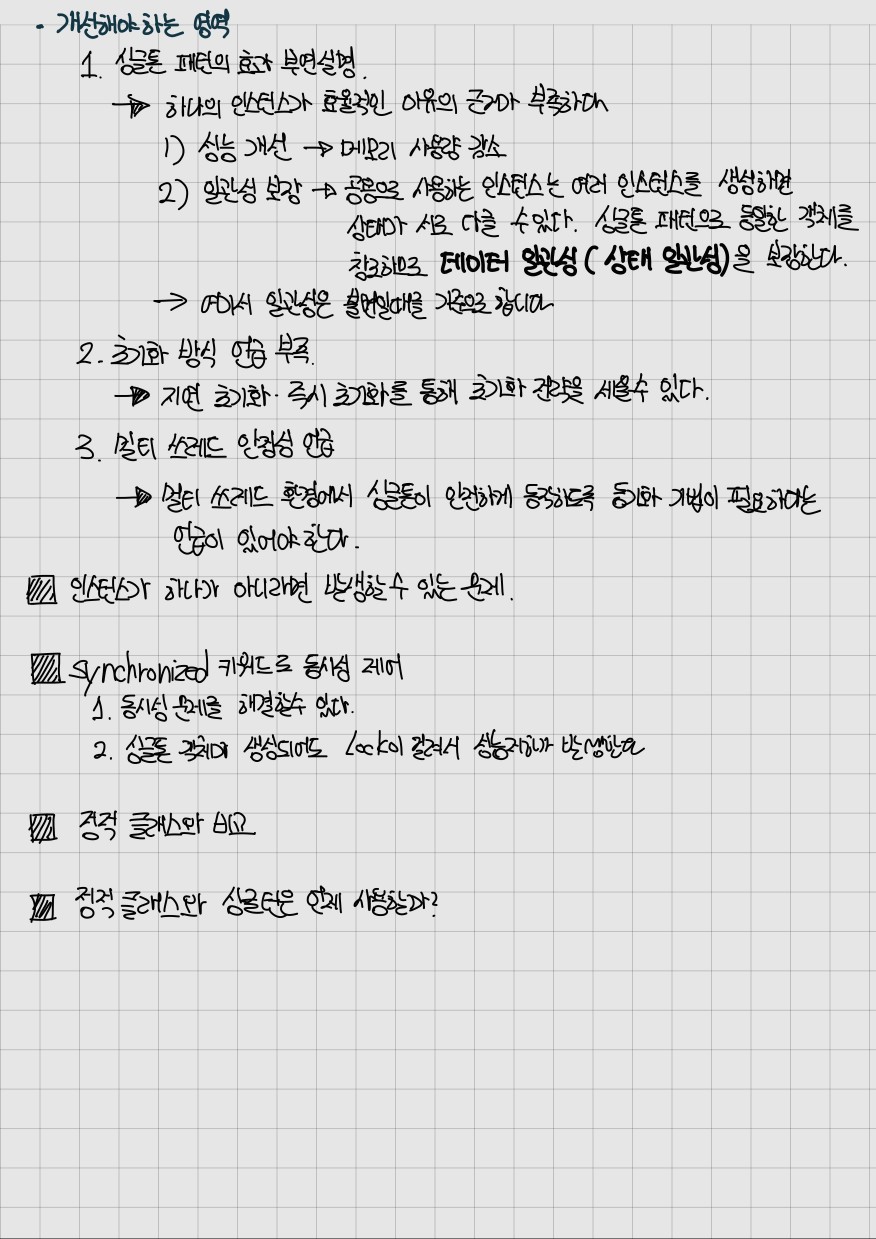 · 개선해야하는 영역
1. 싱글톤 패턴의 효과 부연설명.
→ 하나의 인스턴스가 효율적인 이유의 근거가 부족하다
1) 성능 개선 → 메모리 사용량 감소
2) 일관성 보장 → 공용으로 사용하는 인스턴스는 여러 인스턴스를 생성하면
상태가 서로 다를 수있다. 싱글톤 패턴으로 동일한 객체를
참조하므로 데이터 일관성 ( 상태 일관성)을 보장한다.
→ 여기서 일관성은 불변일때를 기준으로 합니다
2. 초기화 방식 언급 부족.
→ 지연 초기화· 즉시 초기화를 통해 초기화 전략을 세울수 있다.
3. 멀티 쓰레드 안정성 언급
→ 멀티 쓰레드 환경에서 싱글톤이 안전하게 동작하도록 동기화 기법이 필요하다는
언급이 있어야 한다.
인스턴스가 하나가 아니라면 발생할 수 있는 문제.
synchronized 키워드로 동시성 제어
1. 동시성 문제를 해결할수 있다.
2. 싱글톤 객체가 생성되어도 Lock이 걸려서 성능저하가 발생한다
정적 클래스와 비교
정적 클래스와 싱글턴은 언제 사용할까?